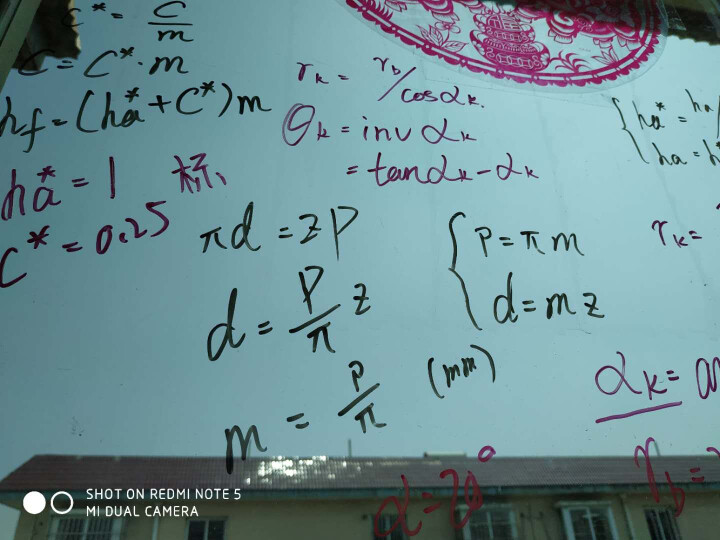 c* = c/m
C = C*·m
hf = (ha* + C*)m
ha* = 1 标、
C* = 0.25
rk = rb/cosαk.
θk = inv αk
= tanαk - αk
{ ha* = ha/
ha = h*
πd = zP
d = P/π z
m = P/π (mm)
{ P = πm
d = mz
rk =
αk =
rb =
α = 20°
SHOT ON REDMI NOTE 5
MI DUAL CAMERA